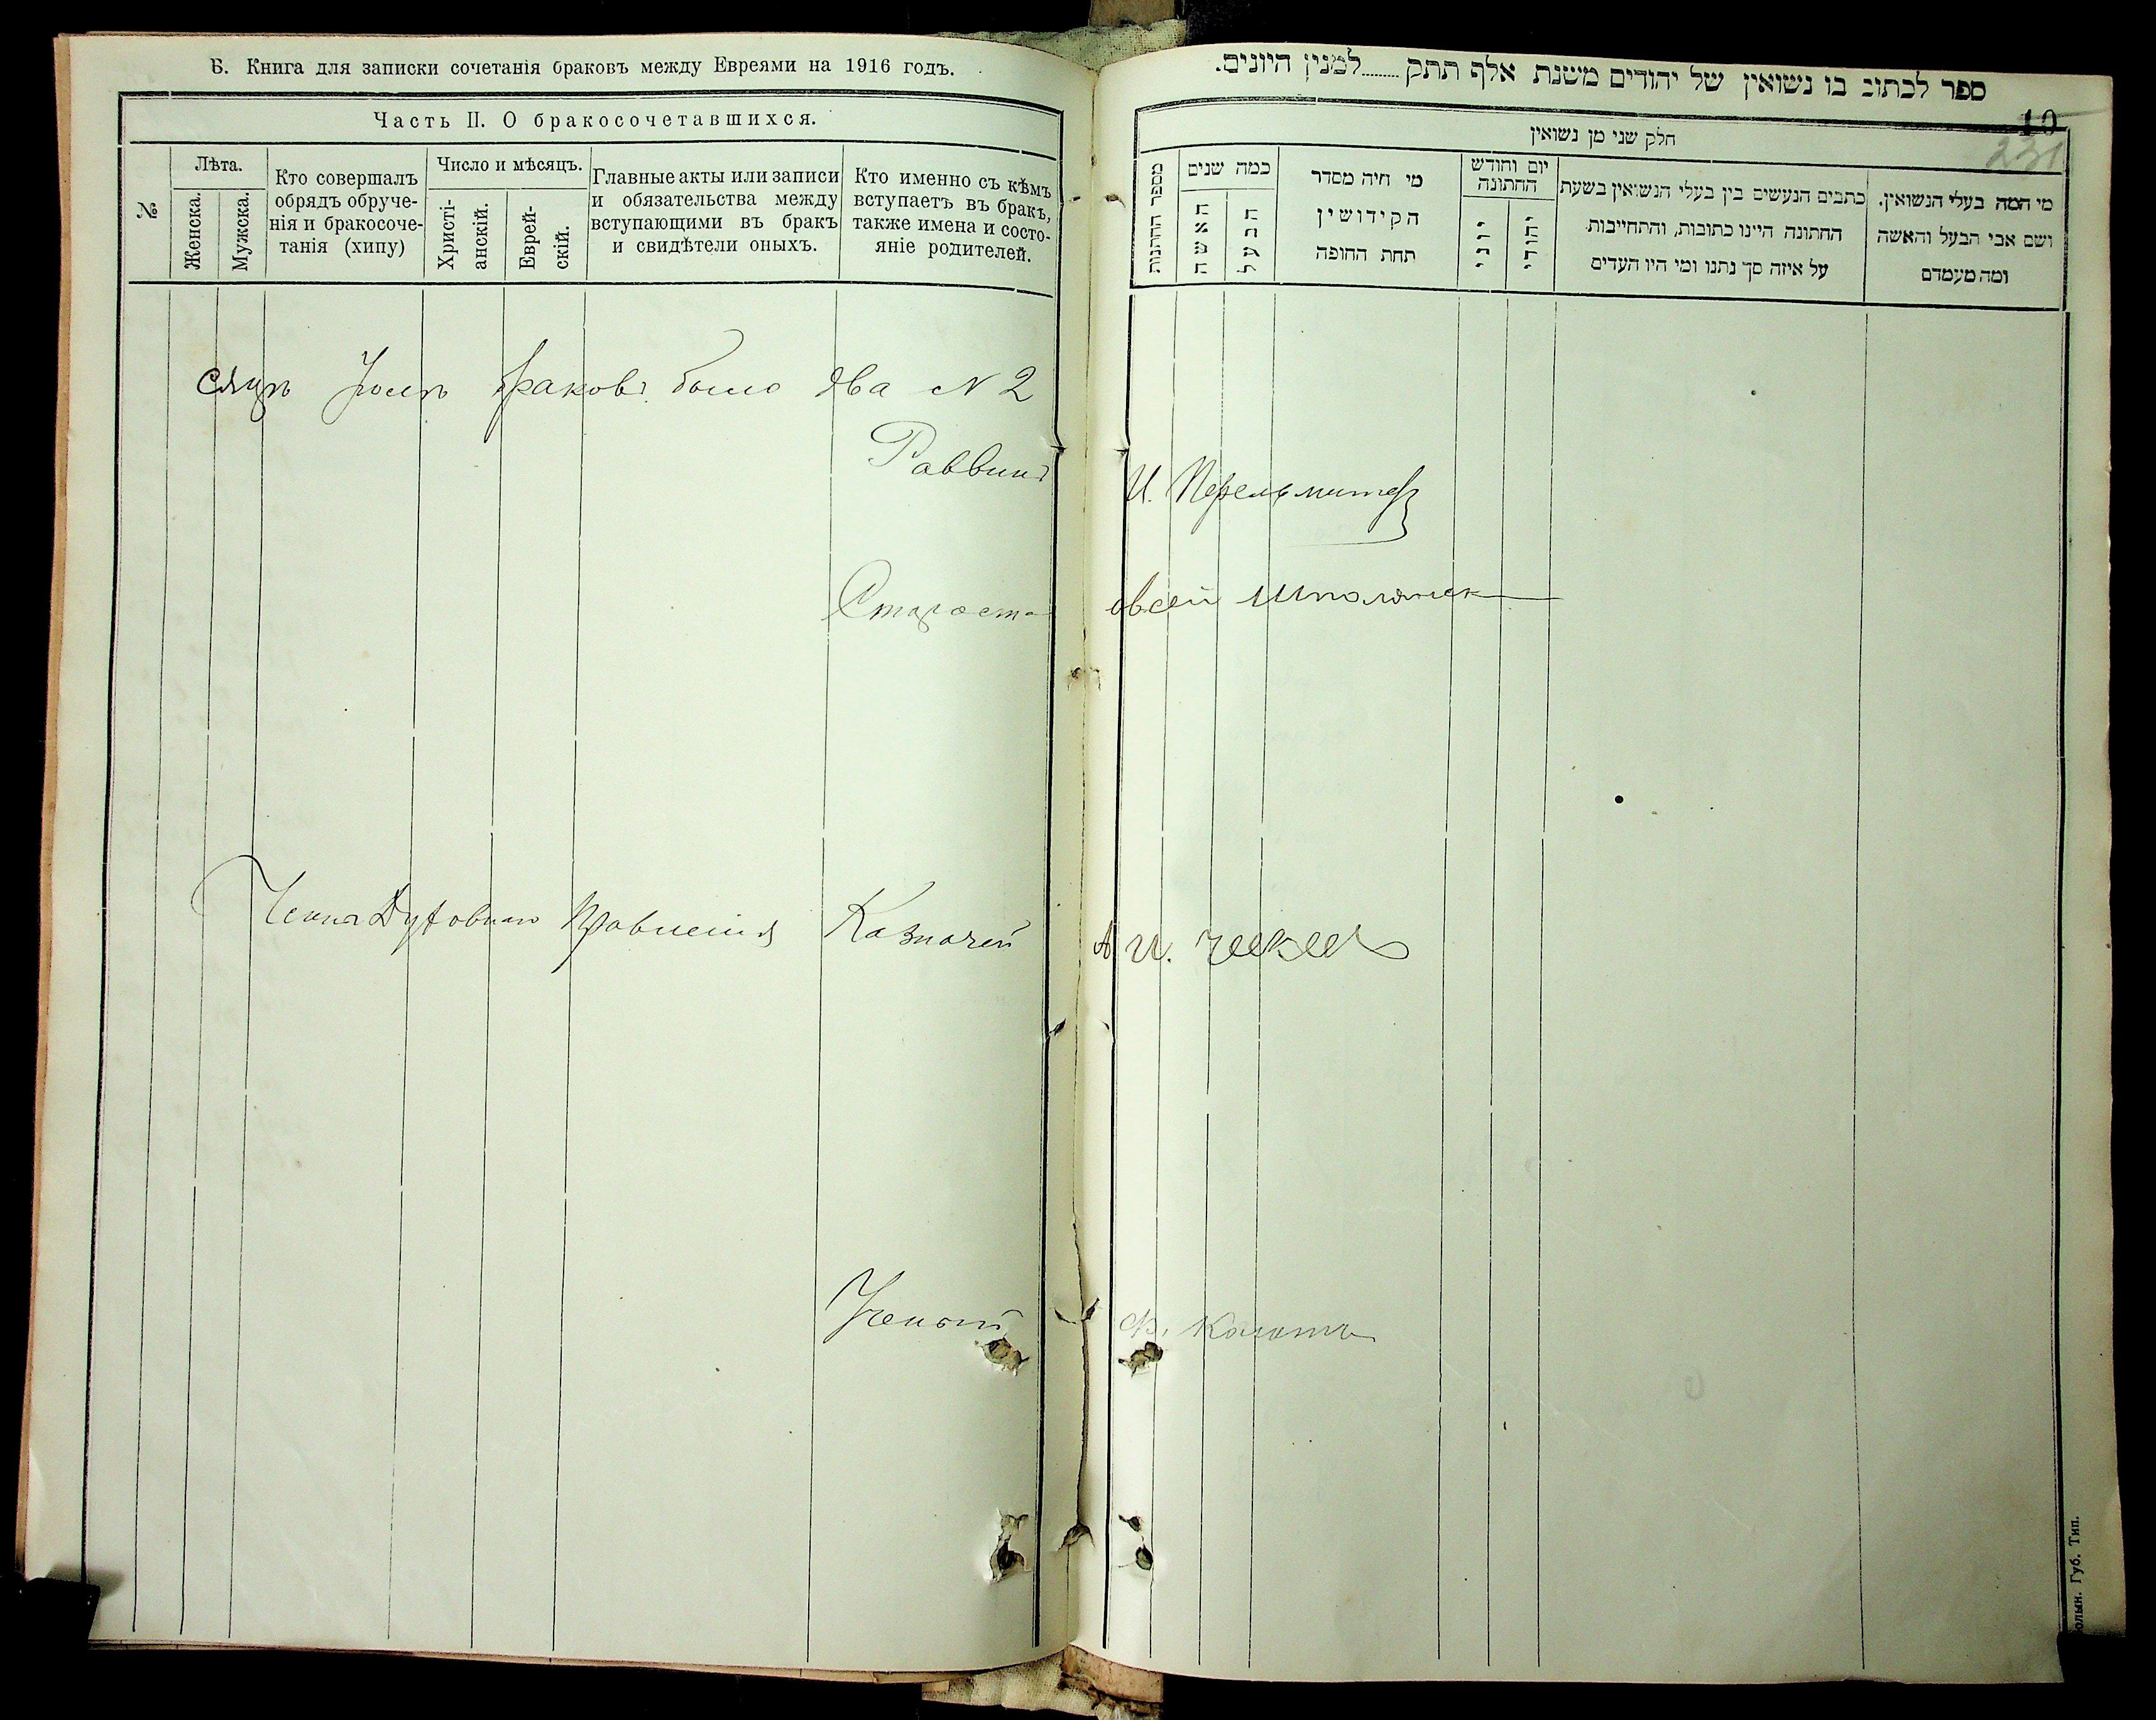 Б. Книга для записки сочетанія браковъ между Евреями на 1916 годъ.
Часть II. О бракосочетавшихся.
№
Лѣта.
Женска.
Мужска.
Кто совершалъ
обрядъ обруче-
нія и бракосоче-
танія (хипу)
Число и мѣсяцъ.
Христі-
анскій.
Еврей-
скій.
Главные акты или записи
и обязательства между
вступающими въ бракъ
и свидѣтели оныхъ.
Кто именно съ кѣмъ
вступаетъ въ бракъ,
также имена и состо-
яніе родителей.
браковъ было два N 2
Раввинъ
Староста
Члены Духовнаго Правленія Казначей
Ученый
ספר לכתוב בו נשואין של יהודים משנת אלף תתק........למנין היונים.
10
231
חלק שני מן נשואין
מספר החתונות
כמה שנים
האשה
הבעל
מי היה מסדר
הקידושין
תחת החופה
יום וחודש
החתונה
יוני
יהודי
כתבים הנעשים בין בעלי הנשואין בשעת
החתונה היינו כתובות, והתחייבות
על איזה סך נתנו ומי היו העדים
מי המה בעלי הנשואין.
ושם אבי הבעל והאשה
ומה מעמדם
И. Перельмитер
Овсей Шполянск
А И.
Губ. Тип.